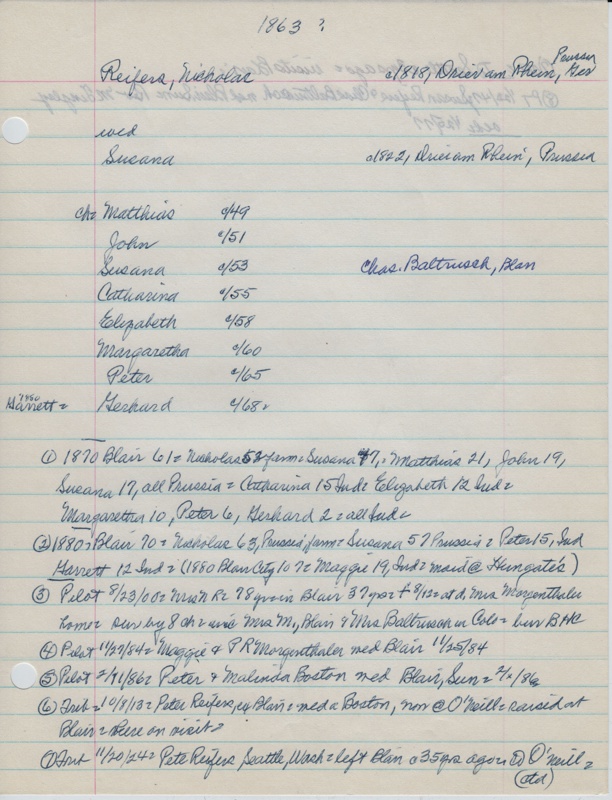 1863 ?
Reifers, Nicholas c1818, Drier am Rhein, Prussia, Ger
wed
Susana c1822, Drier am Rhein, Prussia
ch = Matthias c/49
John c/51
Susana c/53 Chas. Baltrusch, Blair
Catharina c/55
Elizabeth c/58
Margaretha c/60
Peter c/65
1880 Garrett = Gerhard c/68
① 1870 Blair 61 = Nicholas 52 farm = Susana 47, = Matthias 21, John 19,
Susana 17, all Prussia = Catharina 15 Ind = Elizabeth 12 Ind =
Margarettra 10, Peter 6, Gerhard 2 = all Ind =
② 1880 = Blair 70 = Nicholas 63, Prussia, farm = Susana 57 Prussia = Peter 15, Ind
Harrett 12 Ind = (1880 Blair City 107 = Maggie 19, Ind = maid @ Hungate's)
③ Pilot 8/23/00 = Mrs N R = 78 yrs in Blair 37 yrs = + 8/12 = at d. Mrs. Morgenthaler
home = surv by 8 ch = inc Mrs M., Blair & Mrs Baltrusch in Colo = bur BHC
④ Pilot 11/27/84 = Maggie & P R Morgenthaler med Blair 11/25/84
⑤ Pilot 2/11/86 = Peter & Malinda Boston med Blair, Sun = 2/ /86
⑥ Trib = 10/8/13 = Peter Reifers, ex Blair = med a Boston, now @ O'Neill = raised at
Blair = here on visit =
⑦ Trib 11/20/24 = Pete Reifers, Seattle, Wash = left Blair c 35 yrs ago = O'Neill =
(ctd)